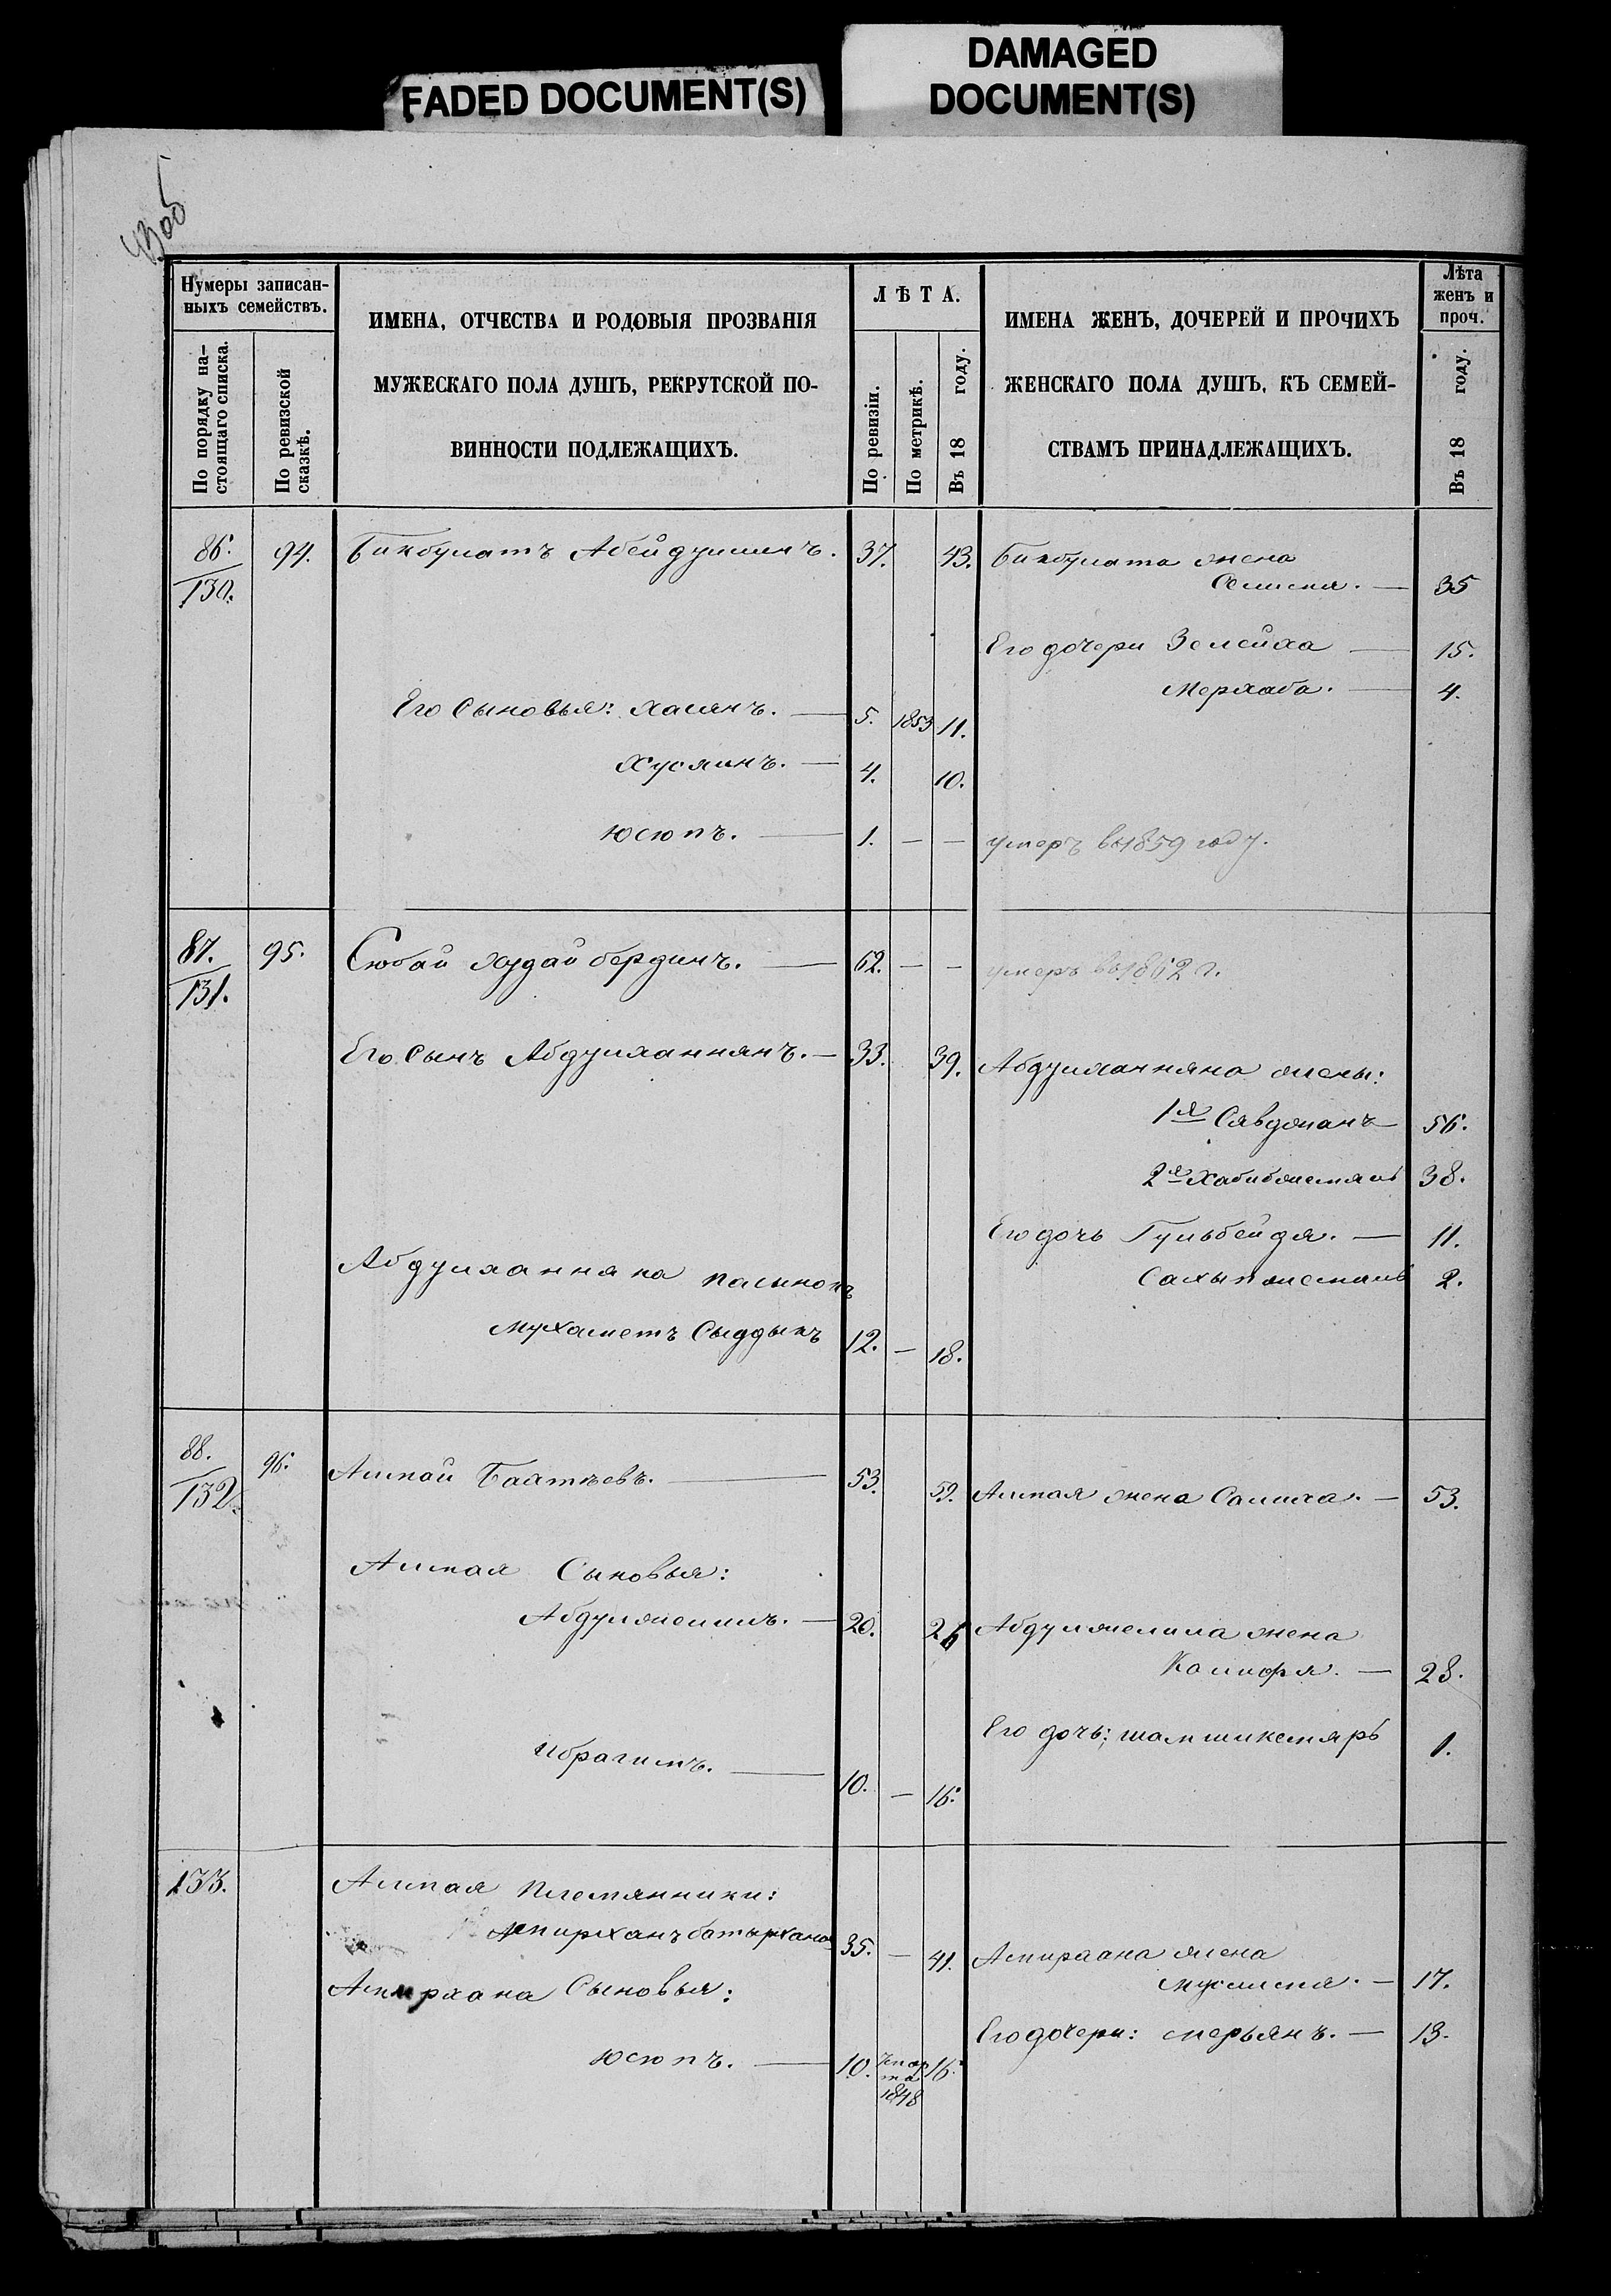 FADED DOCUMENT(S)
DAMAGED
DOCUMENT(S)
Нумеры записан-
ныхъ семействъ.
По порядку на-
стоящаго списка.
По ревизской
сказкѣ.
ИМЕНА, ОТЧЕСТВА И РОДОВЫЯ ПРОЗВАНІЯ
МУЖЕСКАГО ПОЛА ДУШЪ, РЕКРУТСКОЙ ПО-
ВИННОСТИ ПОДЛЕЖАЩИХЪ.
ЛѢТА.
По ревизіи.
По метрикѣ.
Въ 18 году.
ИМЕНА ЖЕНЪ, ДОЧЕРЕЙ И ПРОЧИХЪ
ЖЕНСКАГО ПОЛА ДУШЪ, КЪ СЕМЕЙ-
СТВАМЪ ПРИНАДЛЕЖАЩИХЪ.
Лѣта
женъ и
проч.
Въ 18 году.
86. 94. Бикбулатъ Абейдуллинъ. 37. 43. Бикбулата жена
130.
— 35
Его дочери Зелейха — 15.
Мерхаба. — 4.
Его Сыновья: Хасянъ. — 5. 1853 11.
Хусяинъ. — 4. 10.
Юсюпъ. — 1. — — умеръ въ 1859 году.
87. 95. Сюбай Худайбердинъ. — 62. — — умеръ въ 1862 г.
131.
Его Сынъ Абдулханнянъ. — 33. 39. Абдулханняна жены:
1я Сявджанъ — 56.
2я Хабибжемялъ 38.
Его дочь Гульбейдя. — 11.
Абдулханняна пасынокъ
Сахыпжемалъ 2.
Мухаметъ Сыддыкъ 12. — 18.
88. 96. Алкай Баяткѣевъ. — 53. 59. Алкая жена Салиха. — 53.
132.
Алкая Сыновья:
Абдулжелилъ. — 20. 26 Абдулжелила жена
— 28.
Его дочь: Шамшикемяръ 1.
Ибрагимъ. — 10. — 16.
133. Алкая племянники:
Амирханъ Батырхано 35. — 41. Амирхана жена
Муслимя. — 17.
Амирхана Сыновья:
Его дочери: Мерьянъ. — 13.
Юсюпъ. — 10. 7 мар
та
1848 16.